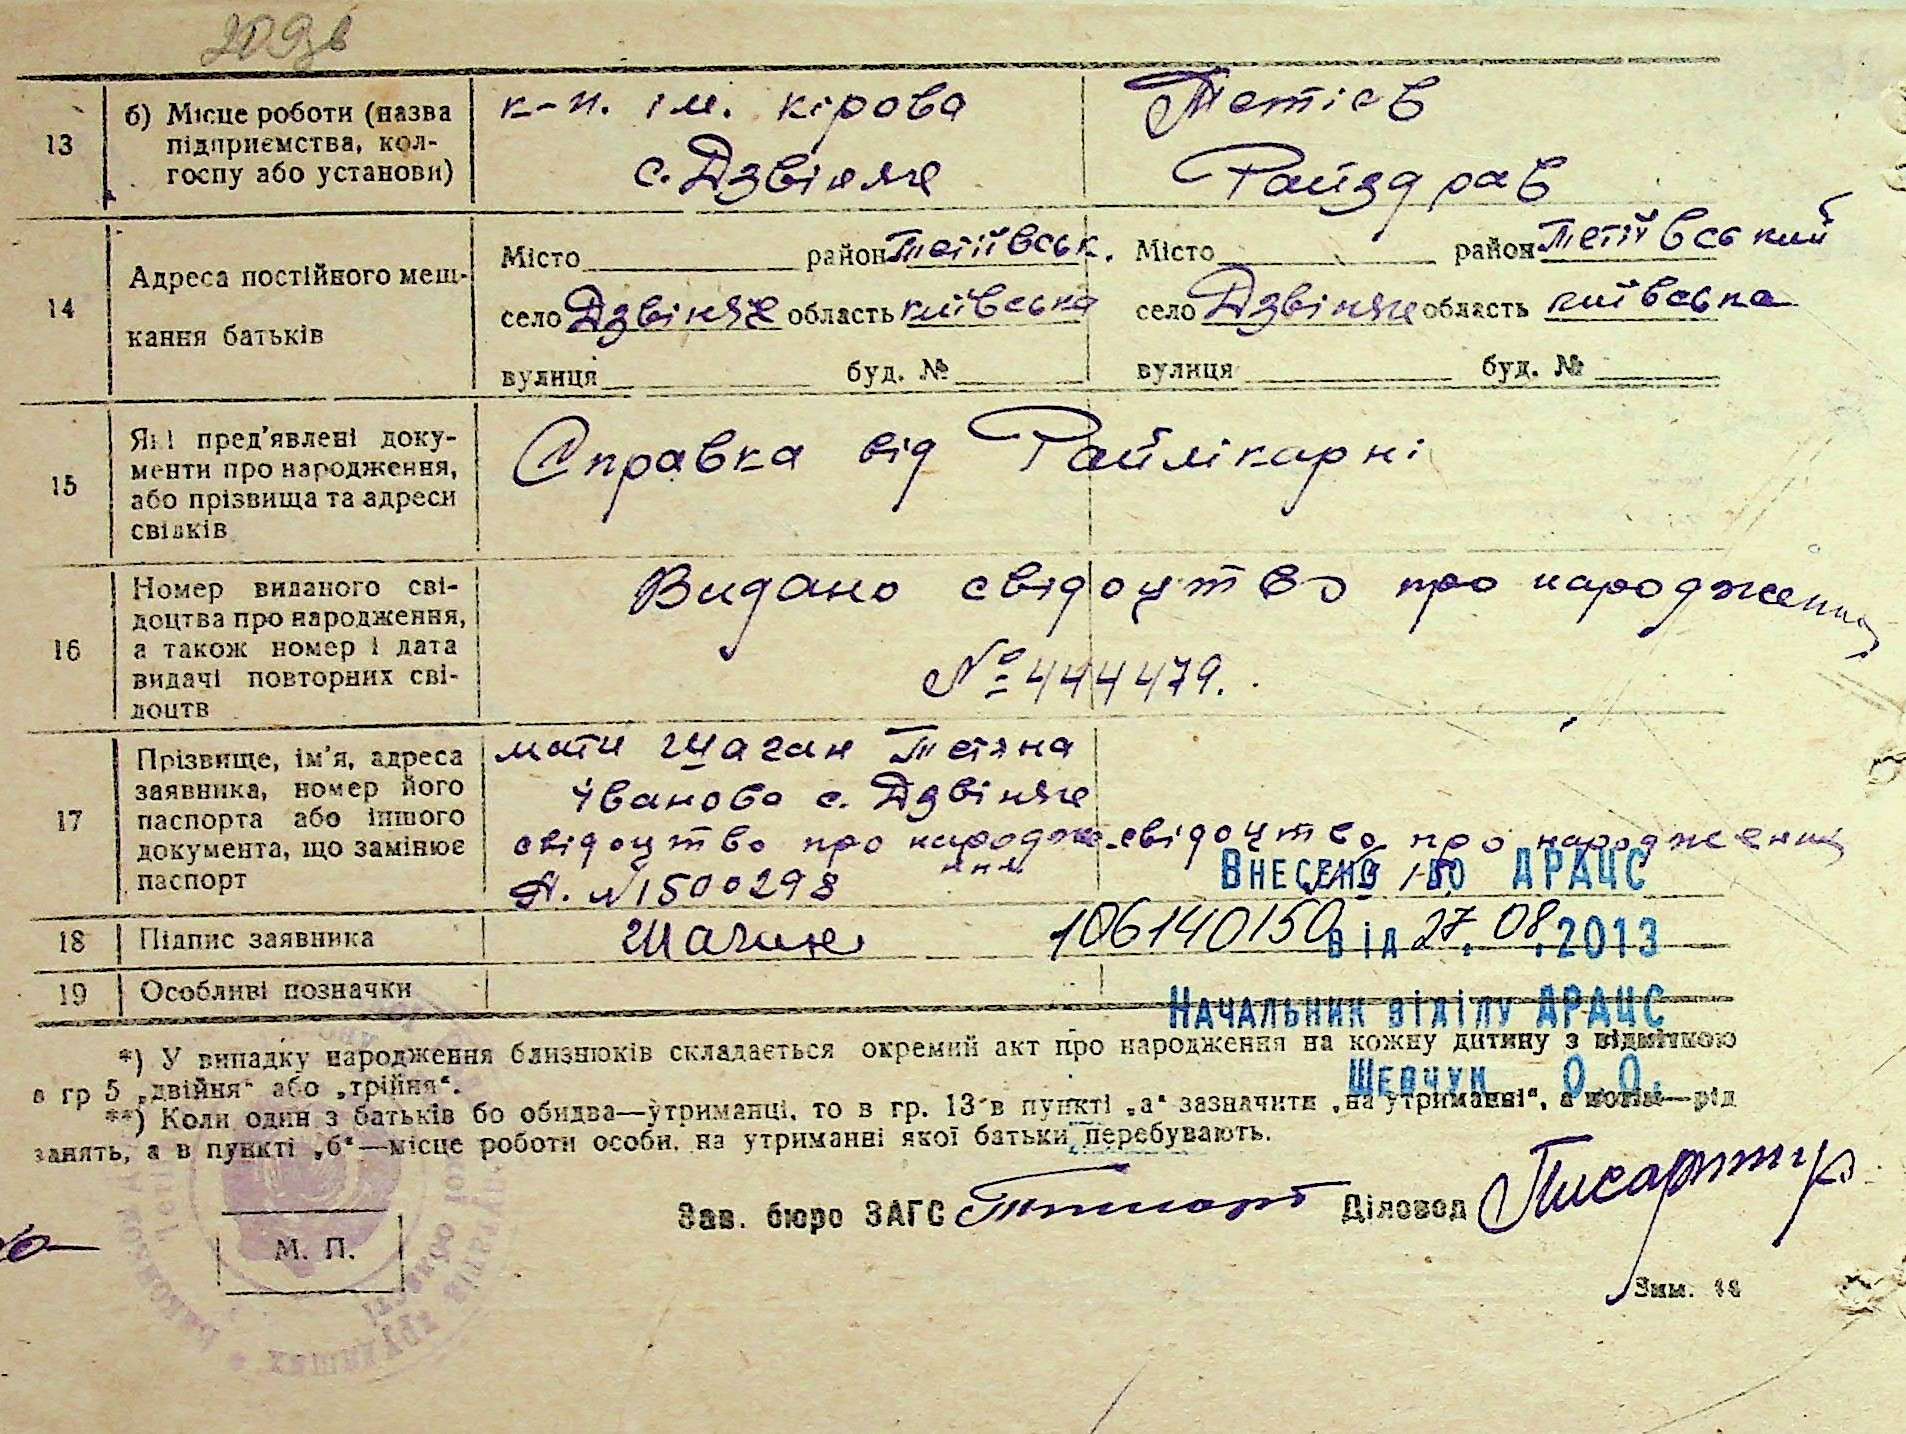 209зв
13
б) Місце роботи (назва підприємства, колгоспу або установи)
к-п. ім. кірова
с. Дзвіняче
Тетієв
Райздрав
14
Адреса постійного мешкання батьків
Місто район Тетіївськ.
село Дзвіняче область київська
вулиця буд. №
Місто район Тетіївський
село Дзвіняче область київська
вулиця буд. №
15
Які пред'явлені документи про народження, або прізвища та адреси свідків
Справка від Райлікарні
16
Номер виданого свідоцтва про народження, а також номер і дата видачі повторних свідоцтв
Видано свідоцтво про народження
№ 444479.
17
Прізвище, ім'я, адреса заявника, номер його паспорта або іншого документа, що замінює паспорт
мати Шаган Тетяна
Івановa с. Дзвіняче
свідоцтво про народження
А. № 1500298
свідоцтво про народження
Внесено до ДРАЦС
106140150 від 27.08.2013
18
Підпис заявника
19
Особливі позначки
Начальник відділу ДРАЦС
Шевчук О.О.
*) У випадку народження близнюків складається окремий акт про народження на кожну дитину з відміткою
в гр 5 „двійня“ або „трійня“.
**) Коли один з батьків бо обидва—утриманці, то в гр. 13 в пункті „а“ зазначити „на утриманні“, а потім—рід
занять, а в пункті „б“—місце роботи особи, на утриманні якої батьки перебувають.
Зав. бюро ЗАГС
Діловод
М. П.
Зам.